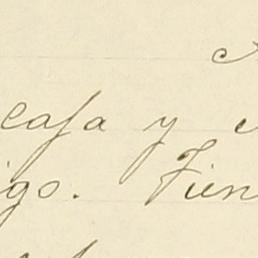 casa y
igo. Tien